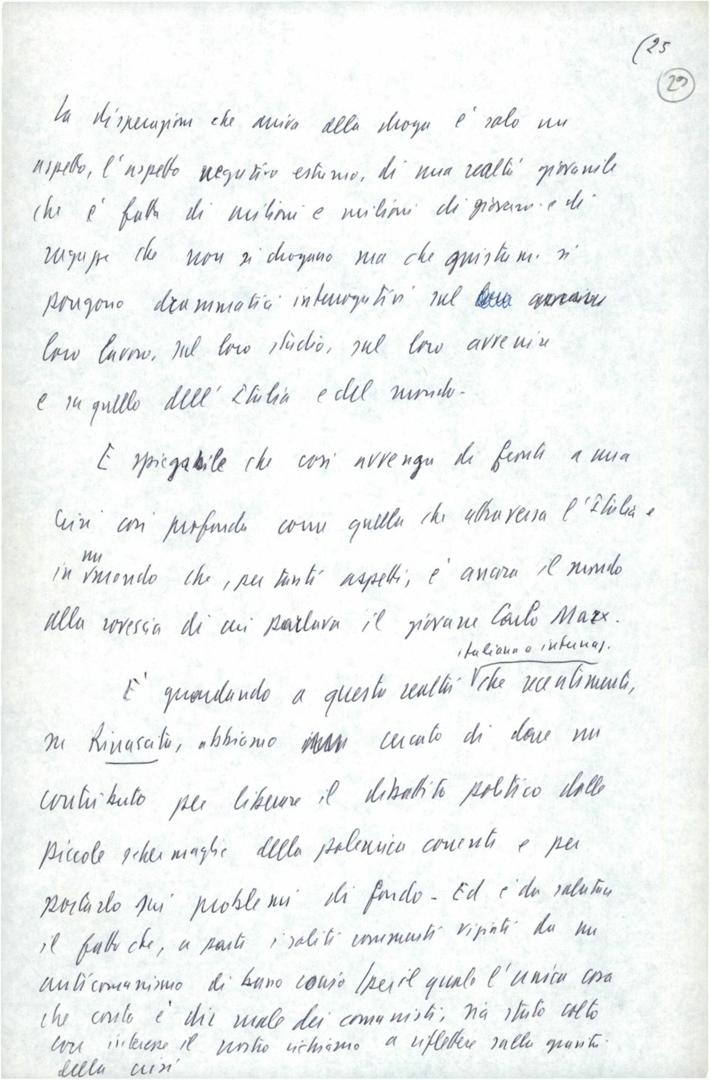 (25
29
La disperazione che arriva alla droga è solo un
aspetto, l'aspetto negativo estremo, di una realtà giovanile
che è fatta di milioni e milioni di giovani e di
ragazze che non si drogano ma che giustam. si
pongono drammatici interrogativi sul
loro lavoro, sul loro studio, sul loro avvenire
e su quello dell'Italia e del mondo.
È spiegabile che così avvenga di fronte a una
crisi così profonda come quella che attraversa l'Italia e
in un mondo che, per tanti aspetti, è ancora il mondo
alla rovescia di cui parlava il giovane Carlo Marx.
italiana e internaz.
È guardando a questa realtà che recentemente,
su Rinascita, abbiamo cercato di dare un
contributo per liberare il dibattito politico dalle
piccole schermaglie della polemica corrente e per
portarlo sui problemi di fondo. Ed è da salutare
il fatto che, a parte i soliti commenti viziati da un
anticomunismo di basso conio (per il quale l'unica cosa
che conta è dir male dei comunisti, sia stato colto
con interesse il nostro richiamo a riflettere sulla gravità
della crisi